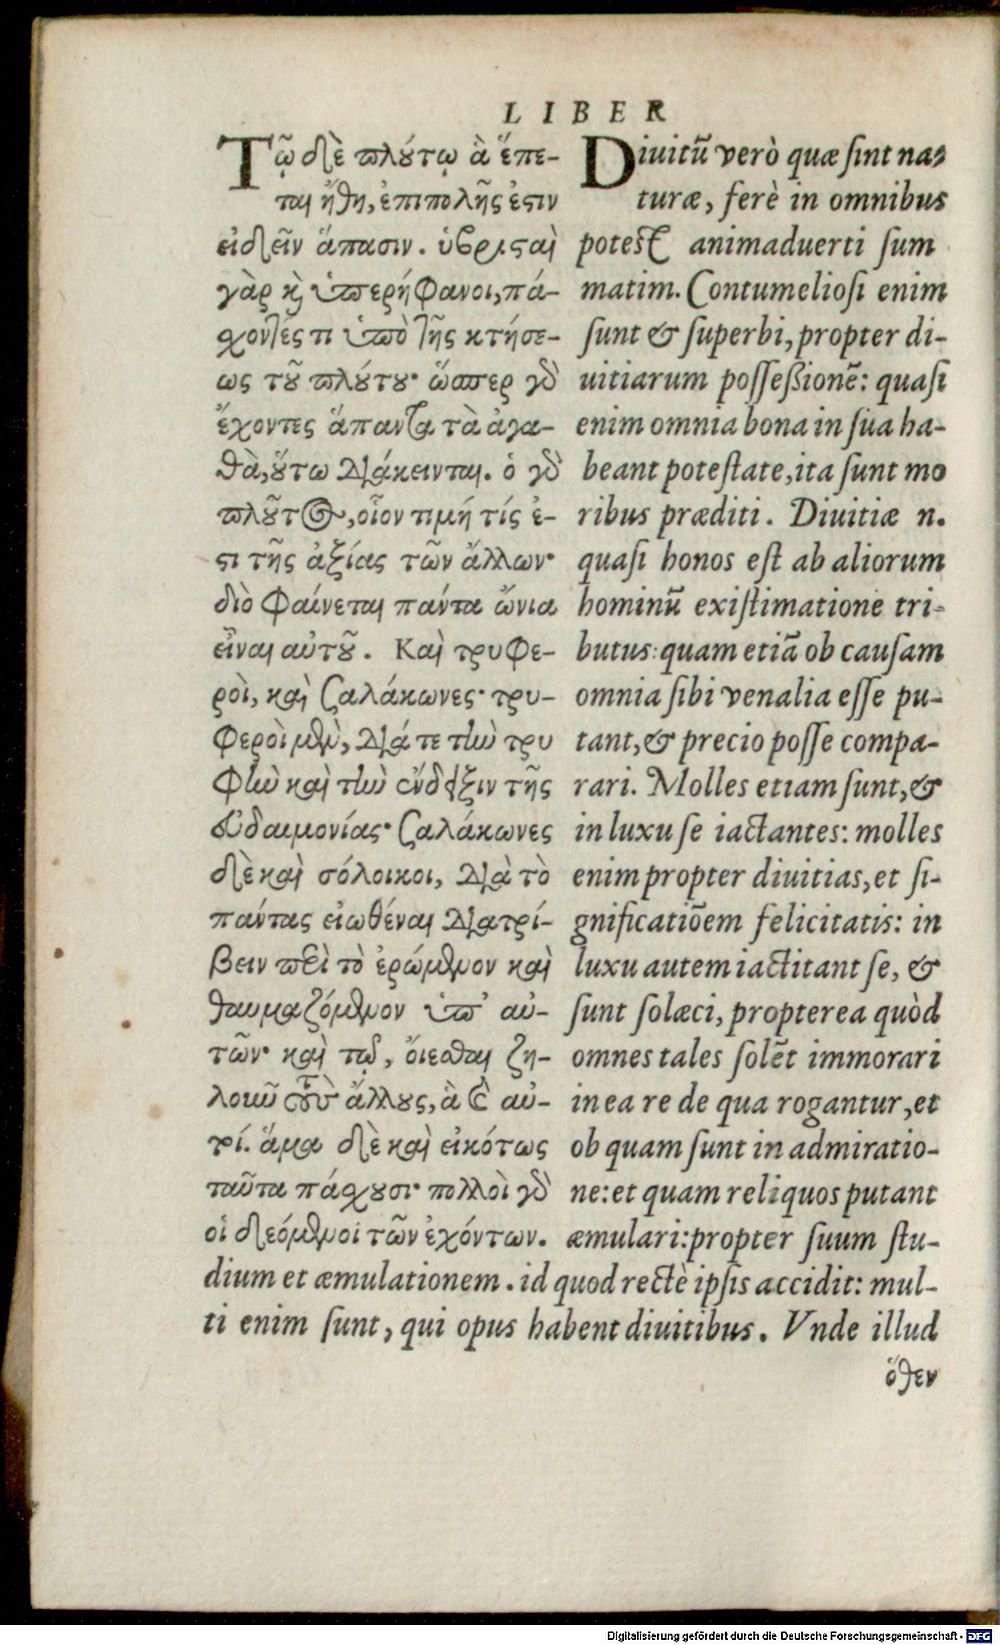 LIBER
Τῷ δὲ πλούτῳ ἃ ἕπε-
ται ἤθη, ἐπιπολῆς ἐστιν
εἰδεῖν ἅπασιν. ὑβρισταὶ
γὰρ κὶ ὑπερήφανοι, πά-
σχοντές τι ὑπὸ τῆς κτήσε-
ως τοῦ πλούτου· ὥσπερ γὸ
ἔχοντες ἅπαντα τὰ ἀγα-
θὰ, οὕτω διάκεινται. ὁ γὸ
πλοῦτος, οἷον τιμή τίς ἐ-
στι τῆς ἀξίας τῶν ἄλλων·
διὸ φαίνεται πάντα ὤνια
εἶναι αὐτοῦ. Καὶ τρυφε-
ροὶ, καὶ ζαλάκωνες· τρυ-
φεροὶ μὲν, διά τε τὴν τρυ
φὴν καὶ τὴν ἔνδειξιν τῆς
εὐδαιμονίας· ζαλάκωνες
δὲ καὶ σόλοικοι, διὰ τὸ
πάντας εἰωθέναι διατρί-
βειν περὶ τὸ ἐρώμενον καὶ
θαυμαζόμενον ὑπ' αὐ-
τῶν· καὶ τῷ, οἴεσθαι ζη-
λοῦν τοὺς ἄλλους, ἃ καὶ αὐ-
τοί. ἅμα δὲ καὶ εἰκότως
ταῦτα πάσχουσι· πολλοὶ γὸ
οἱ δεόμενοι τῶν ἐχόντων.
Diuitũ verò quæ ſint na-
turæ, ferè in omnibus
poteſt animaduerti ſum
matim. Contumelioſi enim
ſunt & ſuperbi, propter di-
uitiarum poſſeßionẽ: quaſi
enim omnia bona in ſua ha-
beant poteſtate, ita ſunt mo
ribus præditi. Diuitiæ n.
quaſi honos eſt ab aliorum
hominũ exiſtimatione tri-
butus: quam etiã ob cauſam
omnia ſibi venalia eſſe pu-
tant, & precio poſſe compa-
rari. Molles etiam ſunt, &
in luxu ſe iactantes: molles
enim propter diuitias, et ſi-
gnificatiõem felicitatis: in
luxu autem iactitant ſe, &
ſunt ſolæci, propterea quòd
omnes tales ſolẽt immorari
in ea re de qua rogantur, et
ob quam ſunt in admiratio-
ne: et quam reliquos putant
æmulari: propter ſuum ſtu-
dium et æmulationem. id quod rectè ipſis accidit: mul-
ti enim ſunt, qui opus habent diuitibus. Vnde illud
ὅθεν
Digitalisierung gefördert durch die Deutsche Forschungsgemeinschaft - DFG